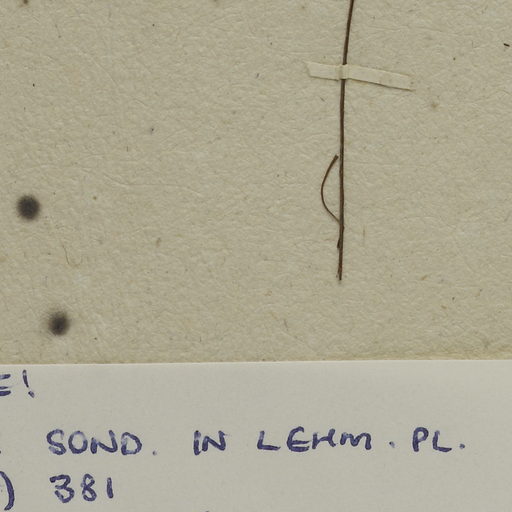 E!
. SOND. IN LEHM. PL.
) 381